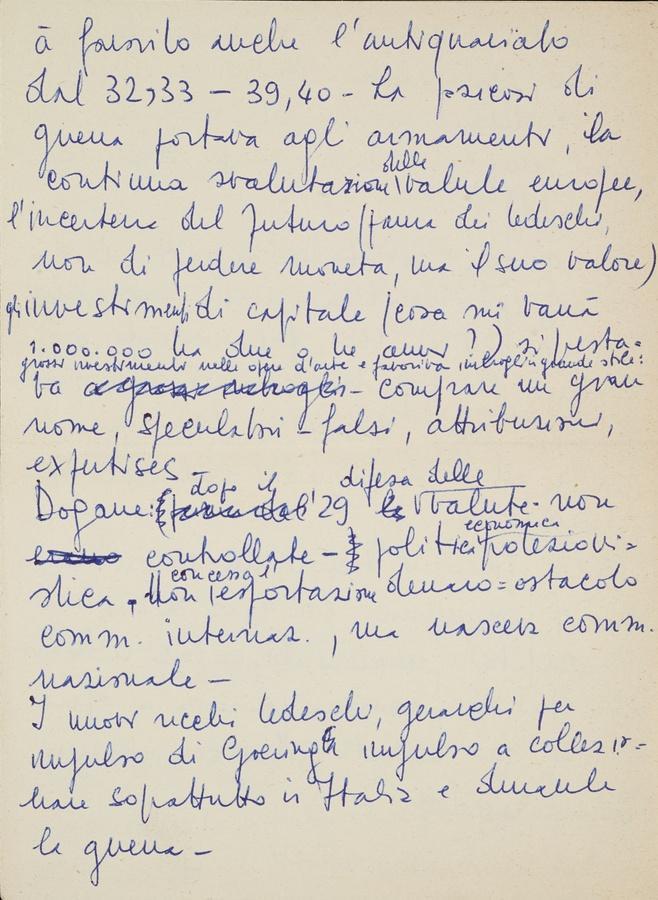 à favorito anche l'antiquariato
dal 32,33 – 39,40 – La psicosi di
guerra portava agli armamenti, la
continua svalutazione delle valute europee,
l'incertezza del futuro (fama dei tedeschi,
non di perdere moneta, ma il suo valore)
gli investimenti di capitale (cosa mi varrà
1.000.000 tra due o tre anni?) si presta-
grossi investimenti nelle opere d'arte e favoriva imbrogli in grande stile:
va a grossi imbrogli – comprare un gran
nome, speculatori – falsi, attribuzioni,
expertises –
Dogane: dopo il '29 difesa delle valute – non
erano controllate – politica economica protezioni=
stica, non concessa l'esportazione denaro = ostacolo
comm. internaz., ma nascerà comm.
nazionale –
I nuovi ricchi tedeschi, gerarchi per
impulso di Goering impulso a collezio=
nare soprattutto in Italia e durante
la guerra –